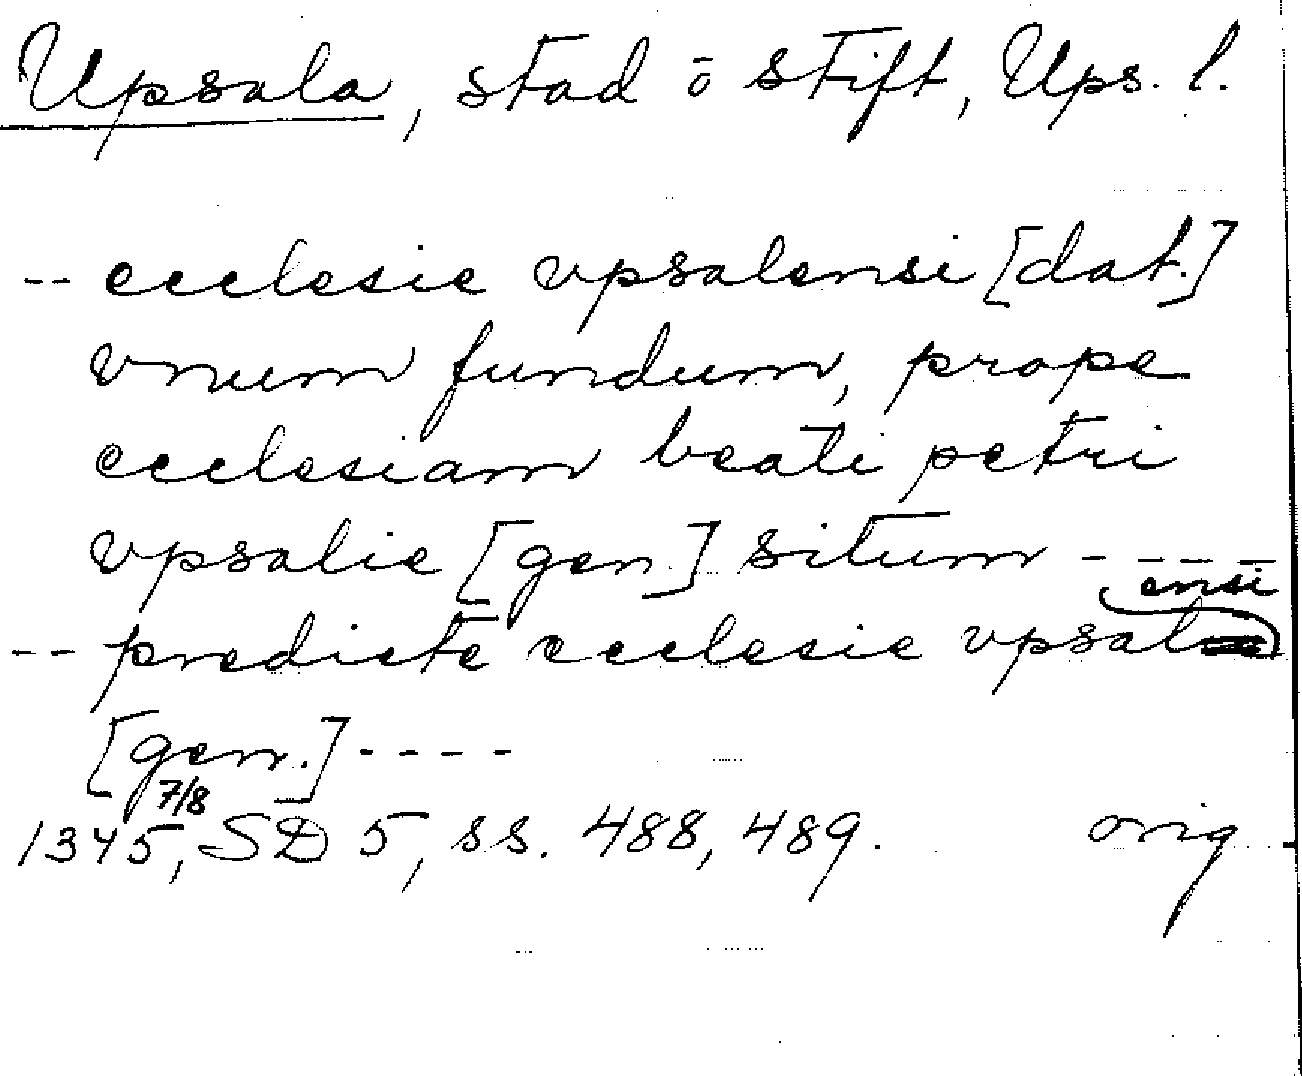 Upsala, stad o stift, Ups. l.
-- ecclesie vpsalensi [dat.]
vnum fundum, prope
ecclesiam beati petri
vpsalie [gen] situm - - - -
-- predicte ecclesie vpsalensi
[gen.] - - - -
1345, 7/8 SD 5, ss. 488, 489. orig